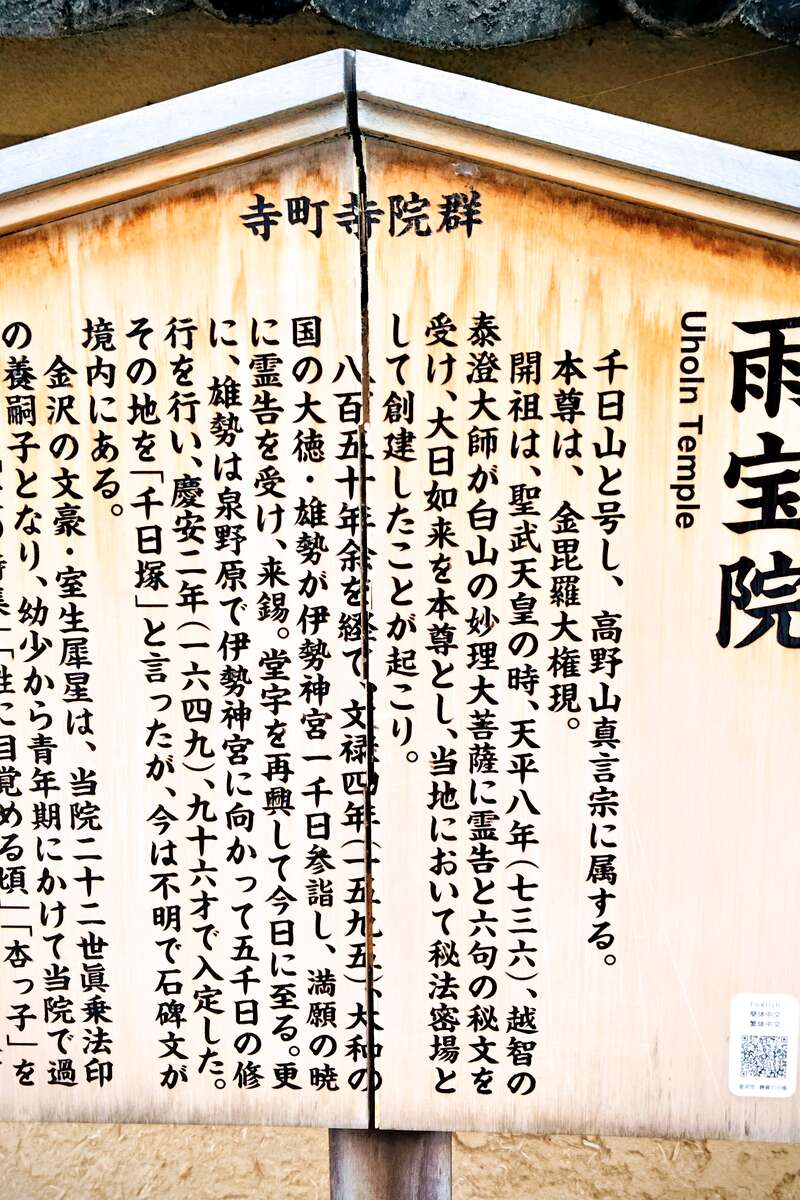 寺町寺院群
雨宝院
UhoIn Temple
千日山と号し、高野山真言宗に属する。
本尊は、金毘羅大権現。
開祖は、聖武天皇の時、天平八年(七三六)、越智の
泰澄大師が白山の妙理大菩薩に霊告と六句の秘文を
受け、大日如来を本尊とし、当地において秘法密場と
して創建したことが起こり。
八百五十年余を経て、文禄四年(一五九五)、大和の
国の大徳・雄勢が伊勢神宮一千日参詣し、満願の暁
に霊告を受け、来錫。堂宇を再興して今日に至る。更
に、雄勢は泉野原で伊勢神宮に向かって五千日の修
行を行い、慶安二年(一六四九)、九十六才で入定した。
その地を「千日塚」と言ったが、今は不明で石碑文が
境内にある。
金沢の文豪・室生犀星は、当院二十二世眞乗法印
の養嗣子となり、幼少から青年期にかけて当院で過
「性に目覚める頃」「杏っ子」を
English
簡体中文
繁体中文